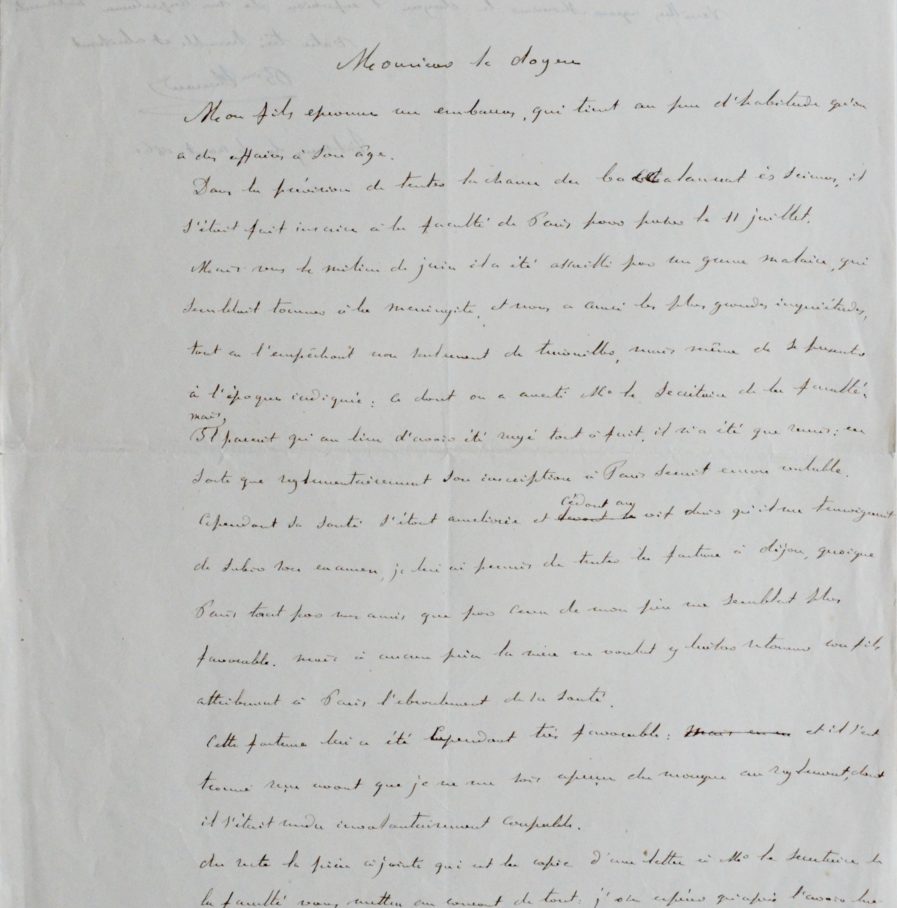 Monsieur le doyen
Mon fils eprouve un embarras, qui tient au peu d'habitude qu'on
a des affaires à son âge.
Dans la prévision de tenter la chance du baccalaureat ès sciences, il
s'était fait inscrire à la faculté de Paris pour passer le 11 juillet.
Mais vers le milieu de juin il a été assailli par un grave malaise, qui
semblait tourner à la meningite, et nous a causé les plus grandes inquiétudes,
tout en l'empêchant non seulement de travailler, mais même de se presenter
à l'époque indiquée : ce dont on a averti Mr le Secrétaire de la faculté.
mais,
Il parait qu'au lieu d'avoir été rayé tout à fait, il n'a été que remis : en
sorte que reglementairement son inscription à Paris serait encore valable.
Cependant sa santé s'étant ameliorée et
cédant au
vif desir qu'il me temoignait
de subir son examen, je lui ai permis de tenter la fortune à dijon, quoique
Paris tant par mes amis que par ceux de mon père me semblat plus
favorable. mais à aucun prix la mère ne voulut y laisser retourner son fils
attribuant à Paris l'ebranlement de sa santé.
Cette fortune lui a été Cependant très favorable : et il s'est
trouvé reçu avant que je ne me sois aperçu du manque au reglement, dont
il s'était rendu involontairement coupable.
du reste la pièce ci jointe qui est la copie d'une lettre à Mr le Secretaire de
la faculté vous mettra au courant de tout :